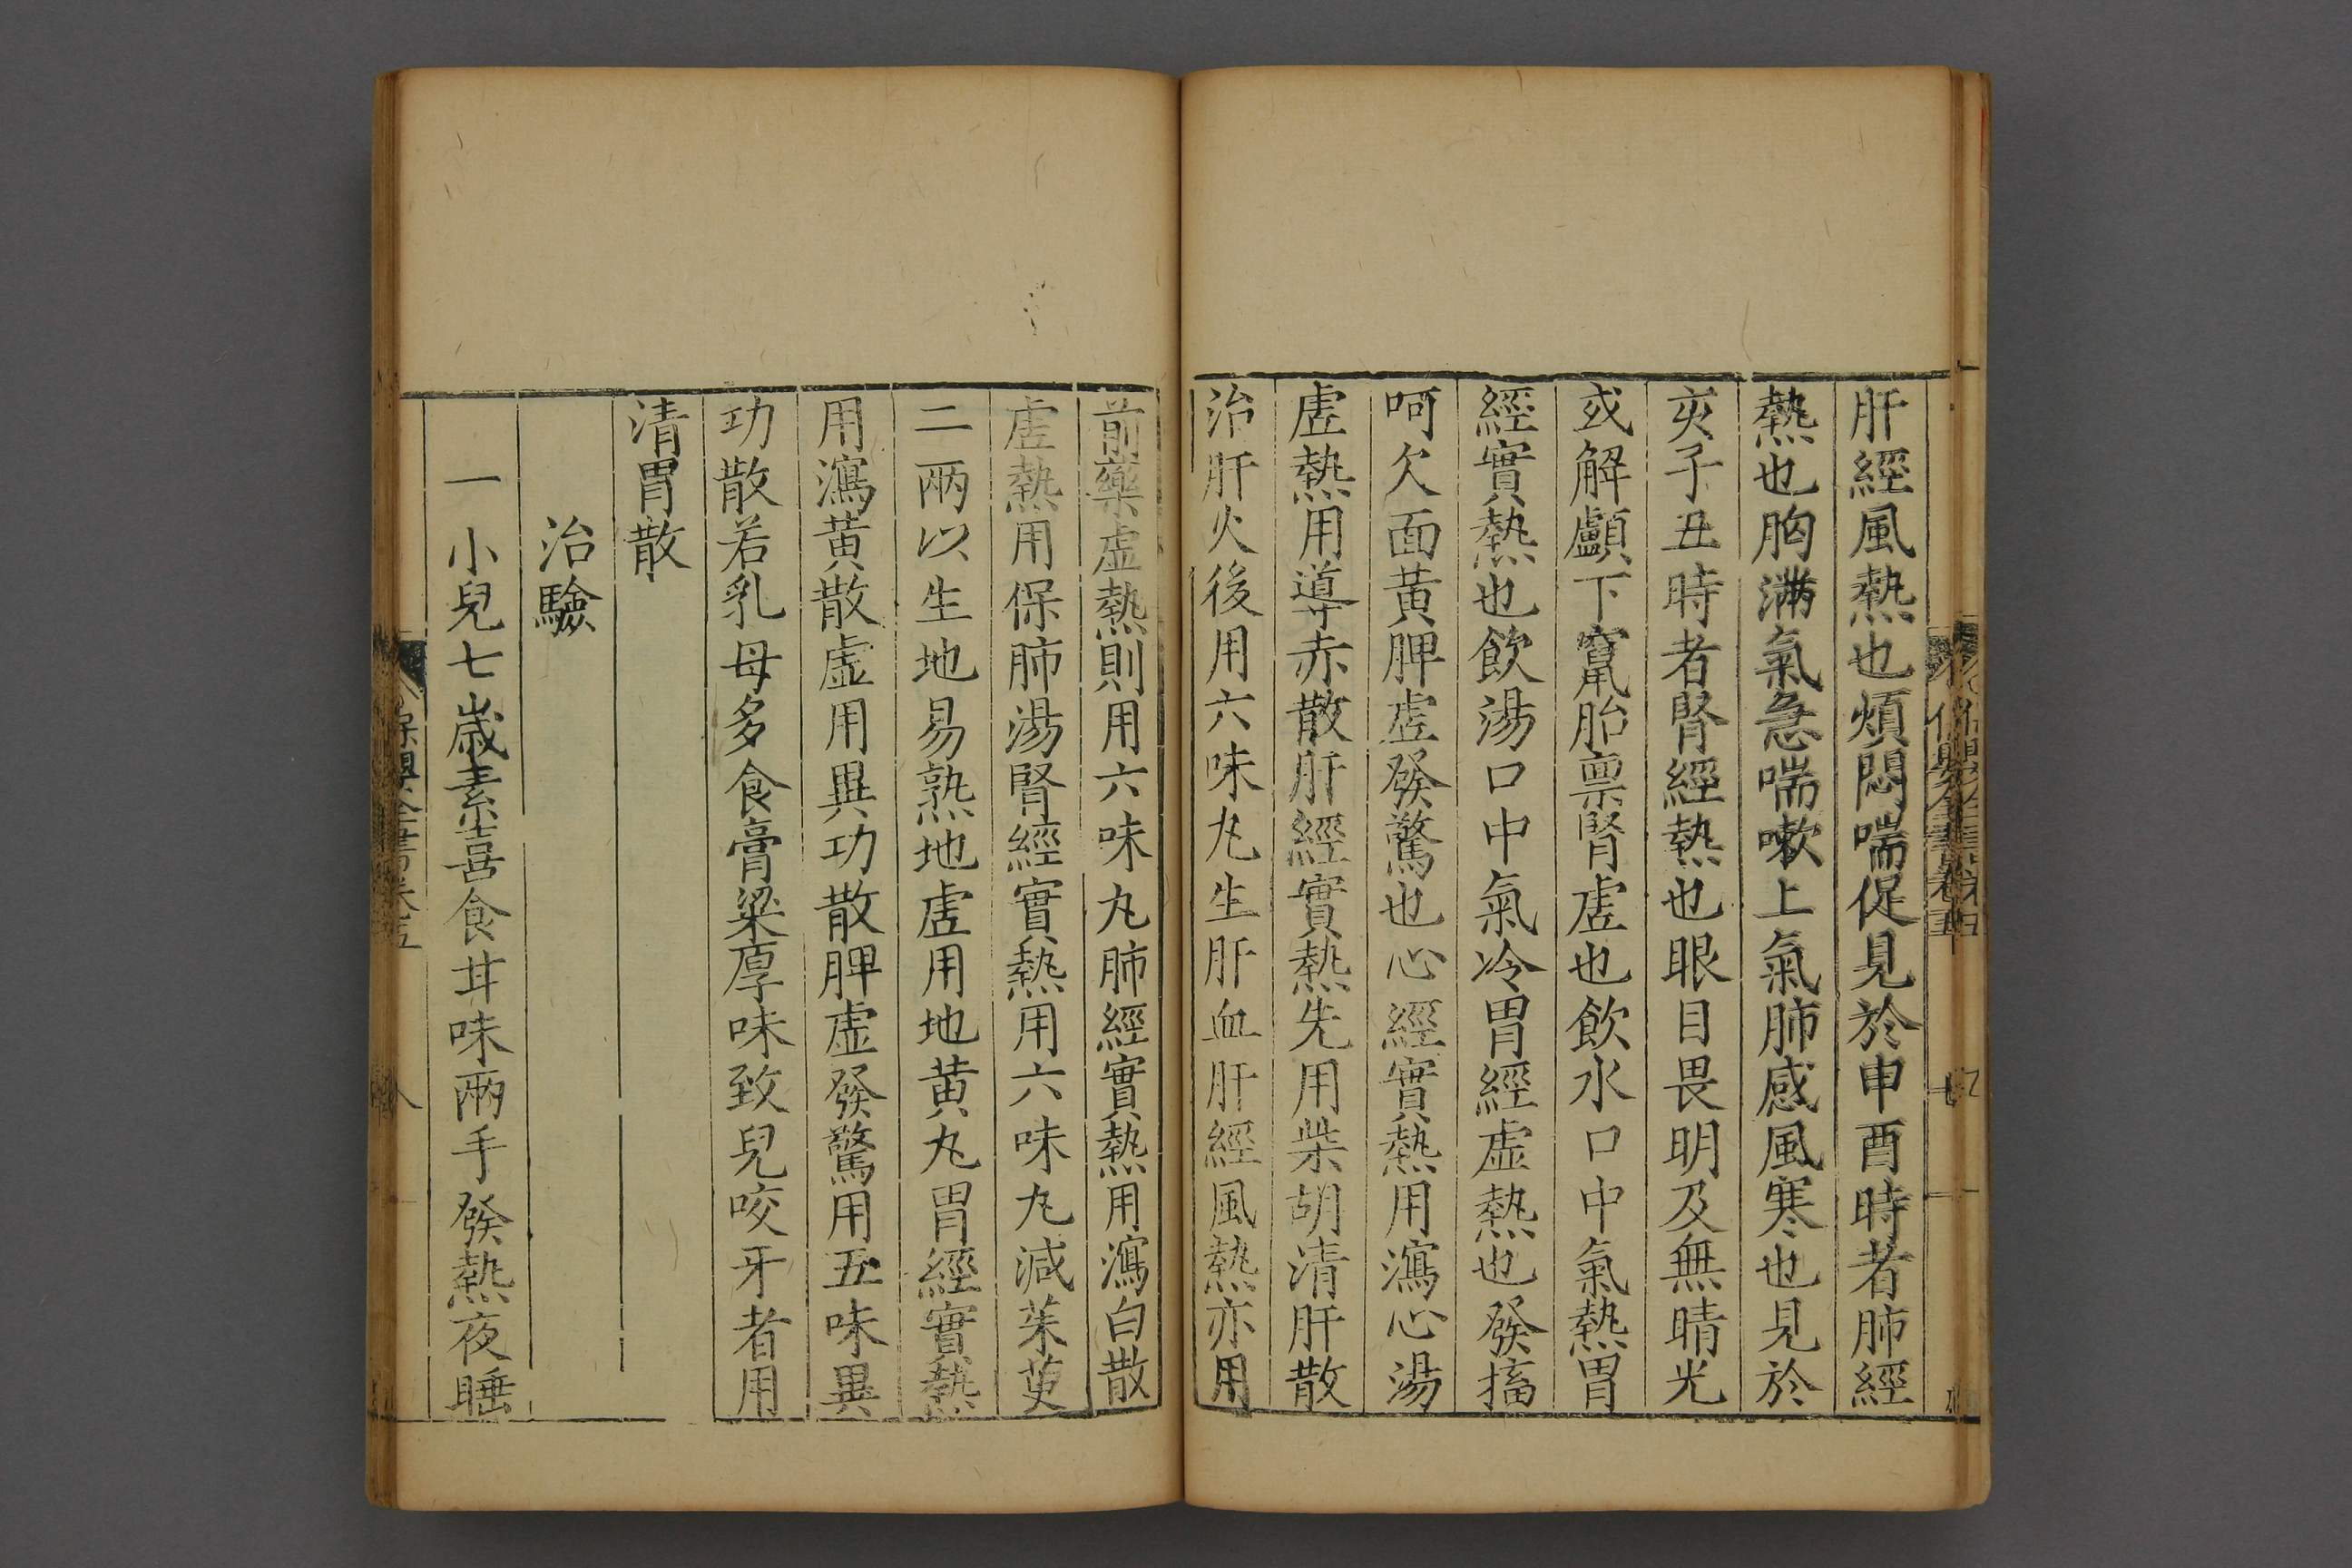 肝經風熱也煩悶喘促見於申酉時者肺經
熱也胸滿氣急喘嗽上氣肺感風寒也見於
亥子丑時者腎經熱也眼目畏明及無睛光
或解顱下竄胎禀腎虛也飲水口中氣熱胃
經實熱也飲湯口中氣冷胃經虛熱也發搐
呵欠面黃脾虛發驚也心經實熱用瀉心湯
虛熱用導赤散肝經實熱先用柴胡清肝散
治肝火後用六味丸生肝血肝經風熱亦用
前藥虛熱則用六味丸肺經實熱用瀉白散
虛熱用保肺湯腎經實熱用六味丸減茱萸
二兩以生地易熟地虛用地黃丸胃經實熱
用瀉黃散虛用異功散脾虛發驚用五味異
功散若乳母多食膏粱厚味致兒咬牙者用
清胃散
治驗
一小兒七歲素喜食甘味兩手發熱夜睡
保嬰全書卷五
八